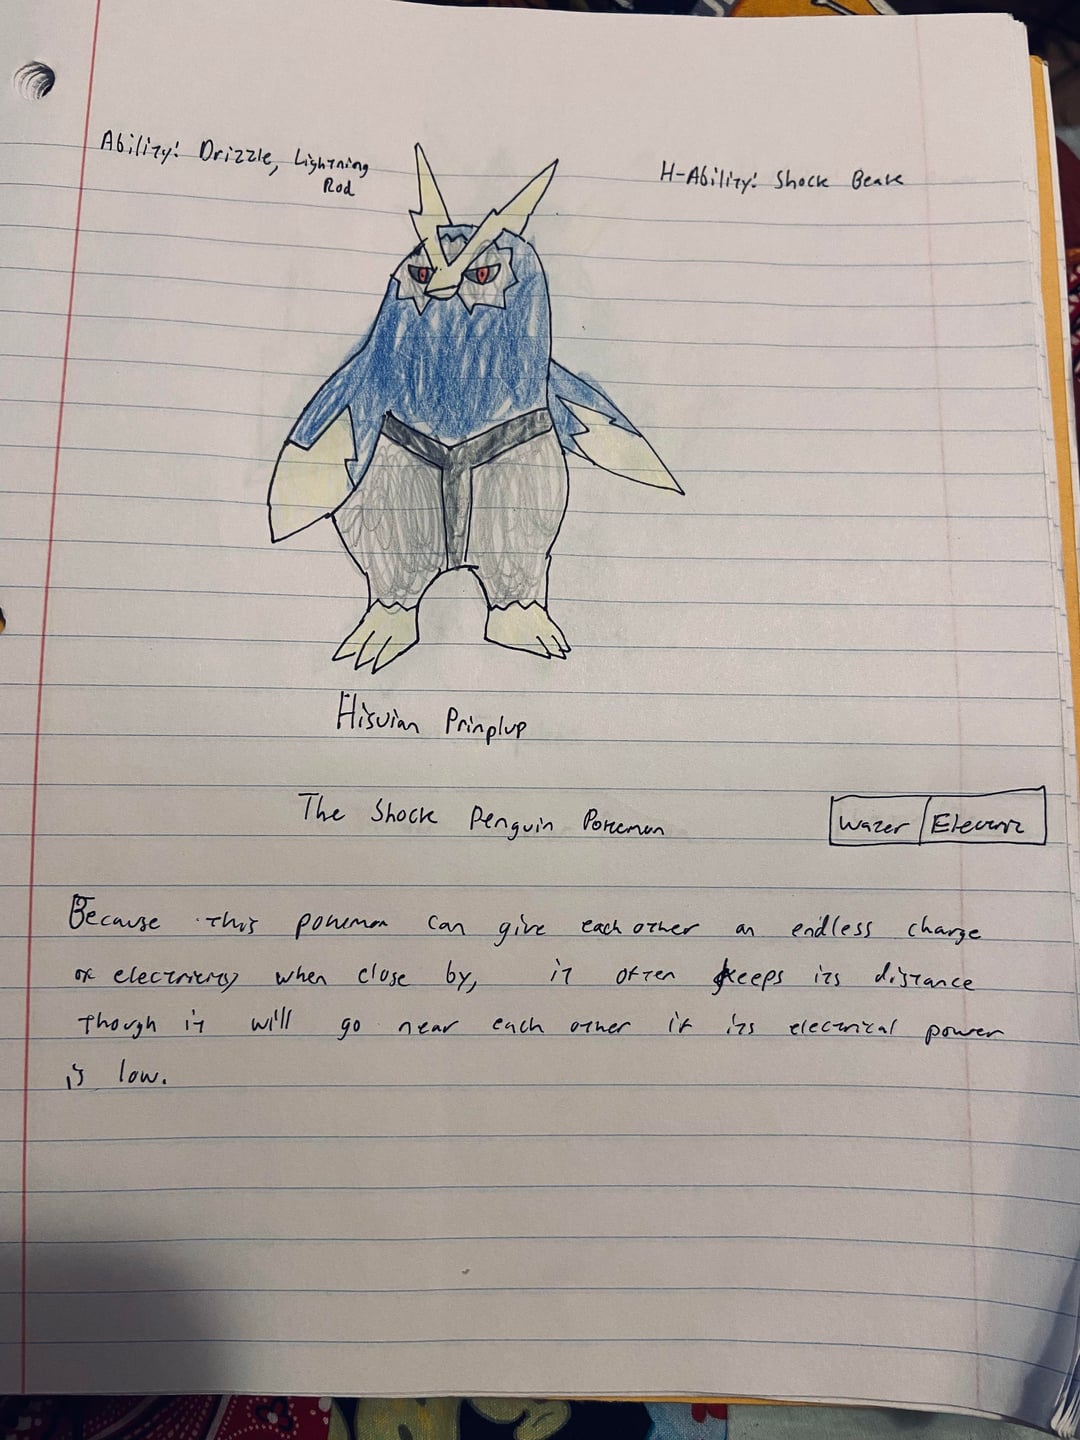 Ability: Drizzle, Lightning
Rod
H-Ability: Shock Beak
Hisuian Prinplup
The Shock Penguin Pokemon
Water Electric
Because this pokemon can give each other an endless charge
of electricity when close by, it often keeps its distance
though it will go near each other if its electrical power
is low.